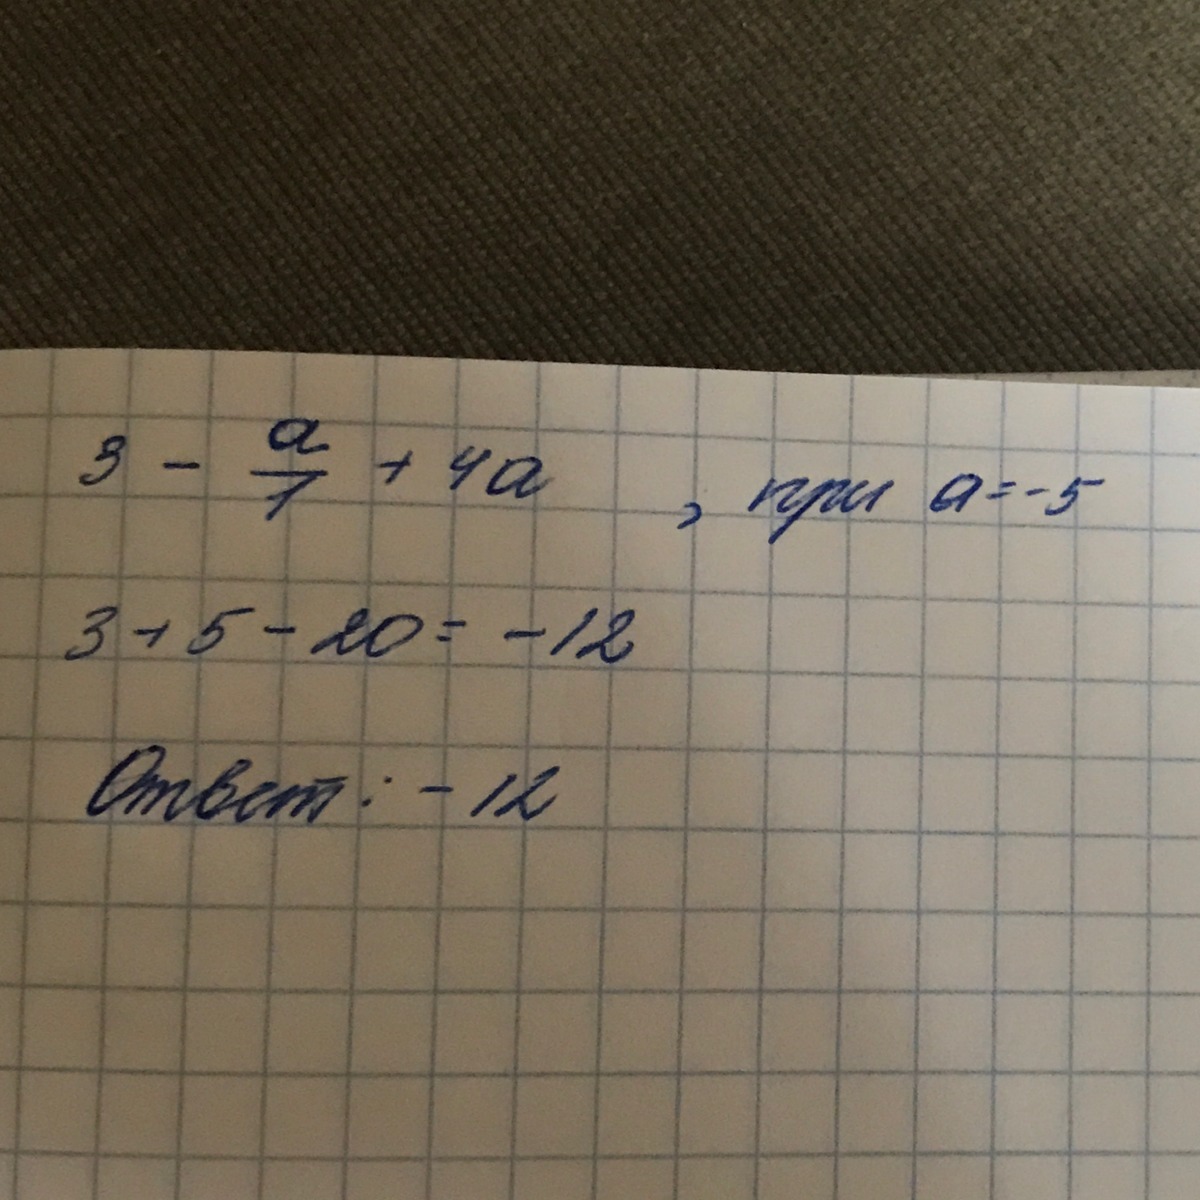 3 - a/1 + 4a , при a=-5
3+5-20= -12
Ответ: -12